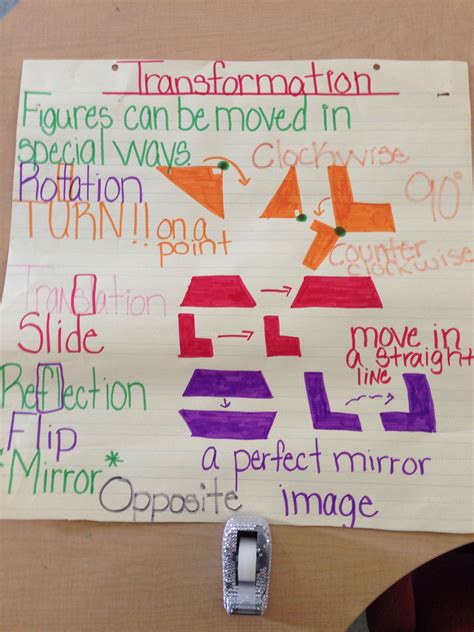 Transformation
Figures can be moved in
special ways
Clockwise
Rotation
90°
TURN!! on a
point
Counter
clockwise
Translation
Slide
move in
a straight
line
Reflection
Flip
*Mirror*
a perfect mirror
Opposite image